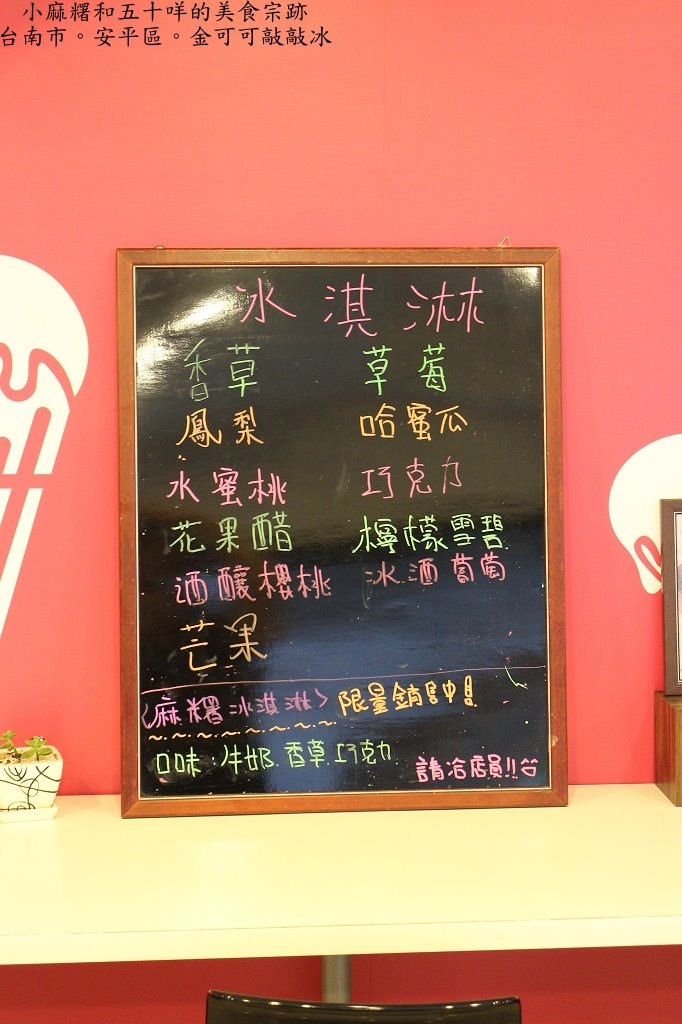 小麻糬和五十咩的美食宗跡
台南市。安平區。金可可敲敲冰
冰淇淋
香草 草莓
鳳梨 哈蜜瓜
水蜜桃 巧克力
花果醋 檸檬雪碧
酒釀櫻桃 冰酒葡萄
芒果
〈麻糬冰淇淋〉限量銷售中!!
口味:牛奶.香草.巧克力
請洽店員!!